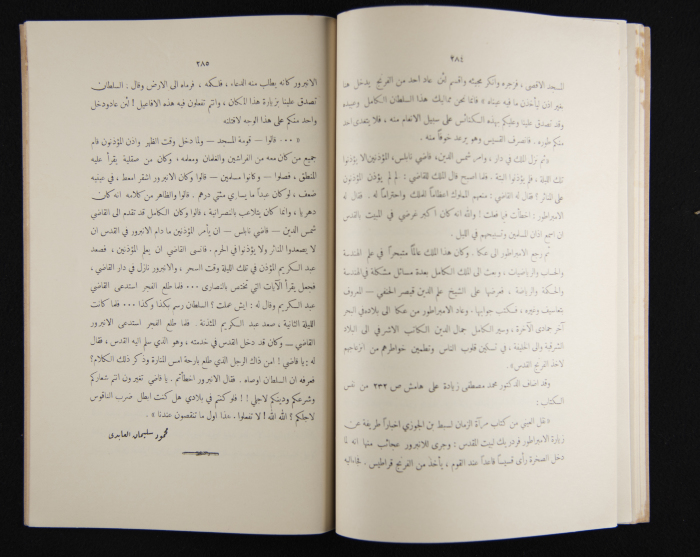 ٢٨٤
المسجد الاقصى ، فزجره وانكر مجيئه واقسم لئن عاد احد من الفرنج يدخل هنا
بغير اذن ليأخذن ما فيه عيناه « فانما نحن مماليك هذا السلطان الكامل وعبيده
وقد تصدق علينا وعليكم بهذه الكنائس على سبيل الانعام منه ، فلا يتعدى احد
منكم طوره . فانصرف القسيس وهو يرعد خوفاً منه .
« ثم نزل الملك في دار ، وامر شمس الدين، قاضي نابلس، المؤذنين الا يؤذنوا
تلك الليلة ، فلم يؤذنوا البتة . فلما اصبح قال الملك للقاضي : لم لم يؤذن المؤذنون
على المنائر ؟ فقال له القاضي : منعهم المملوك اعظاماً للملك واحتراماً له . فقال له
الامبراطور : اخطأت فيما فعلت ! والله انه كان اكبر غرضي في المبيت بالقدس
ان اسمع اذان المسلمين وتسبيحهم في الليل .
« ثم رجع الامبراطور الى عكا . وكان هذا الملك عالماً متبحراً في علم الهندسة
والحساب والرياضيات ، وبعث الى الملك الكامل بعدة مسائل مشكلة في الهندسة
والحكمة والرياضة ، فعرضها على الشيخ علم الدين قيصر الحنفي — المعروف
بتعاسيف وغيره ، فكتب جوابها . وعاد الامبراطور من عكا الى بلاده في البحر
آخر جمادى الآخرة ، وسير الكامل جمال الدين الكاتب الاشرفي الى البلاد
الشرقية والى الخليفة ، في تسكين قلوب الناس وتطمين خواطرهم من انزعاجهم
لاخذ الفرنج القدس» .
وقد اضاف الدكتور محمد مصطفى زيادة على هامش ص ٢٣٢ من نفس
الكتاب :
« نقل العيني من كتاب مرآة الزمان لسبط بن الجوزي اخباراً طريفة عن
زيارة الامبراطور فردريك لبيت المقدس : وجرى للانبرور عجائب منها انه لما
دخل الصخرة رأى قسيساً قاعداً عند القوم ، يأخذ من الفرنج قراطيس . فجاء اليه
٢٨٥
الانبرور كانه يطلب منه الدعاء ، فلكمه ، فرماه الى الارض وقال : السلطان
تصدق علينا بزيارة هذا المكان ، وانتم تفعلون فيه هذه الافاعيل ! لئن عاد ودخل
واحد منكم على هذا الوجه لاقتلنه
« ٠٠٠ قالوا — قومة المسجد — ولما دخل وقت الظهر واذن المؤذنون قام
جميع من كان معه من الفراشين والغلمان ومعلمه ، وكان من صقلية يقرأ عليه
المنطق ، فصلوا — وكانوا مسلمين — قالوا وكان الانبرور اشقر امعط ، في عينيه
ضعف ، لو كان عبداً ما يساوي مئتي درهم . قالوا والظاهر من كلامه انه كان
دهريا ، وانما كان يتلاعب بالنصرانية ، قالوا وكان الكامل قد تقدم الى القاضي
شمس الدين — قاضي نابلس — ان يأمر المؤذنين ما دام الانبرور في القدس ان
لا يصعدوا المنائر ولا يؤذنوا في الحرم . فانسى القاضي ان يعلم المؤذنين ، فصعد
عبد الكريم المؤذن في تلك الليلة وقت السحر ، والانبرور نازل في دار القاضي ،
فجعل يقرأ الآيات التي تختص بالنصارى ٠٠٠ فلما طلع الفجر استدعى القاضي
عبد الكريم وقال له : ايش عملت ؟ السلطان رسم بكذا وكذا ٠٠٠ فلما كانت
الليلة الثانية ، صعد عبد الكريم المئذنة . فلما طلع الفجر استدعى الانبرور
القاضي — وكان قد دخل القدس في خدمته ، وهو الذي سلم اليه القدس ، فقال
له : يا قاضي ! اين ذاك الرجل الذي طلع بارحة امس المنارة وذكر ذلك الكلام؟
فعرفه ان السلطان اوصاه . فقال الانبرور اخطأتم ، يا قاضي تغيرون انتم شعاركم
وشرعكم ودينكم لاجلي ! ! فلو كنتم في بلادي هل كنت ابطل ضرب الناقوس
لاجلكم ؟ الله الله ! لا تفعلوا. هذا اول ما تنقصون عندنا » .
محمود سليمان العابدي